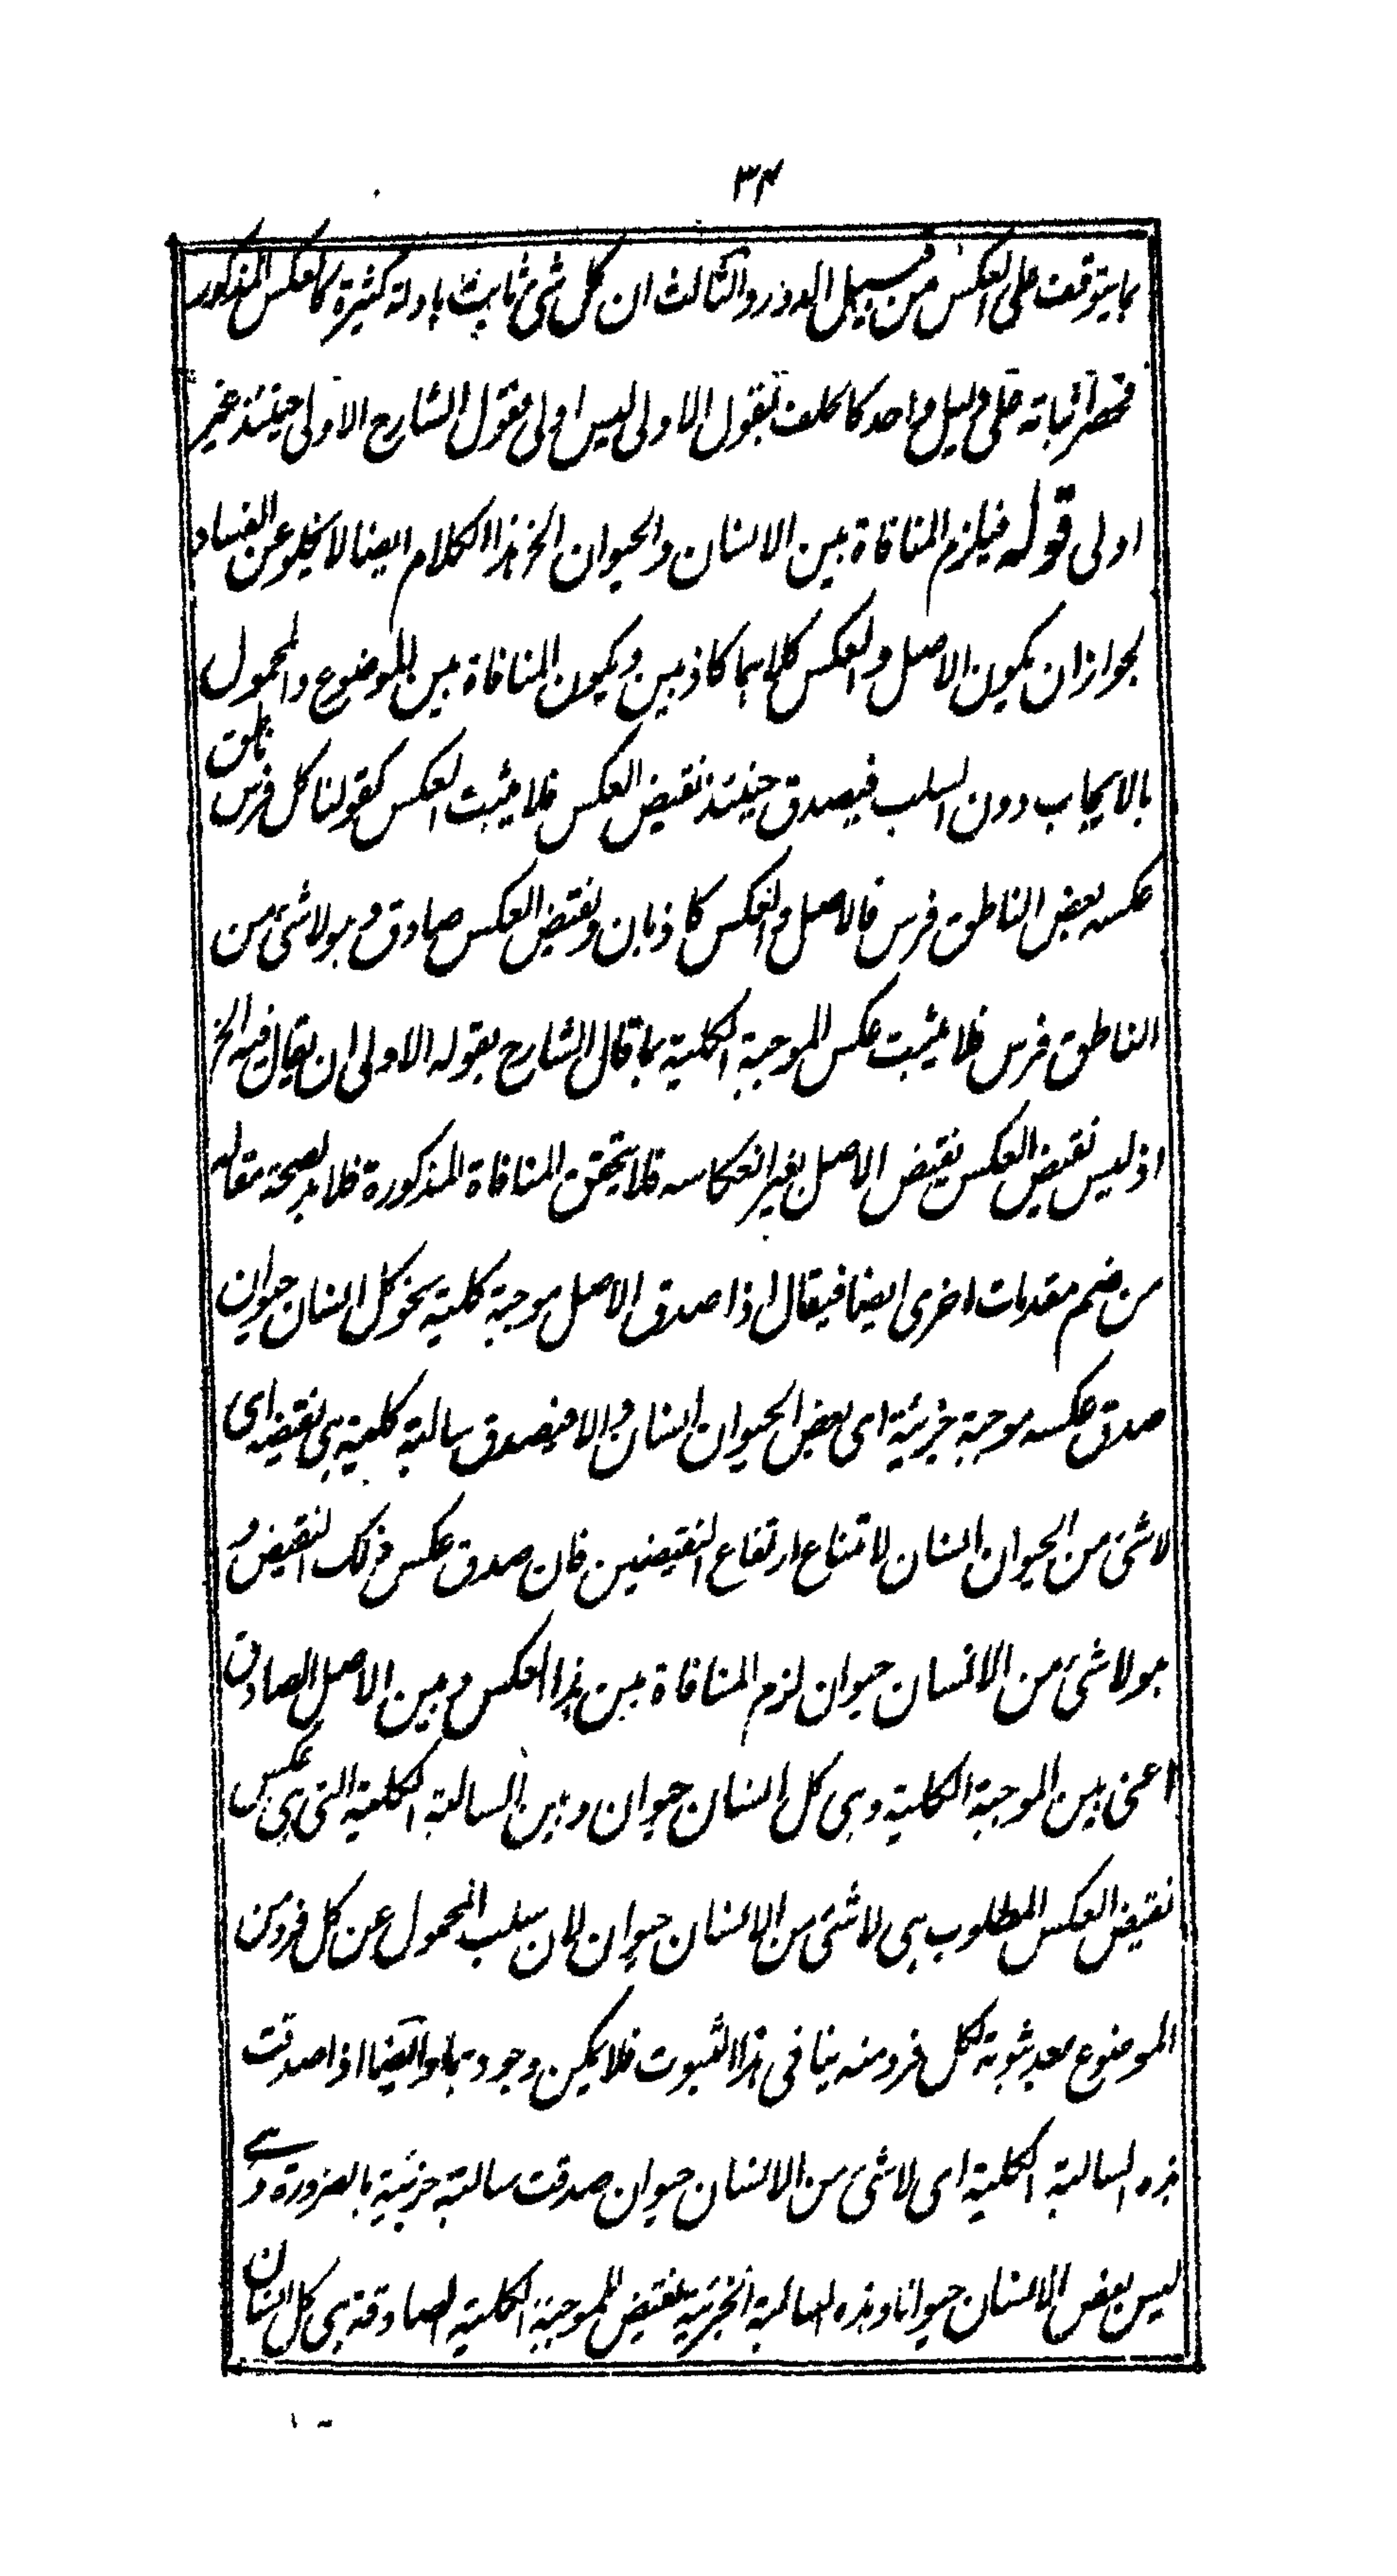 ٣٤
بما يتوقف على العكس من قبيل الدور والثالث ان كل شئ ثابت بادلة كثيرة كالعكس المذكور
فحصر اثباته على دليل واحد كالخلف بقول الاولى ليس اولى فقول الشارح الاولى حينئذ غير
اولى قوله فيلزم المنافاة بين الانسان والحيوان الخ هذا الكلام ايضا لا يخلو عن الفساد
لجواز ان يكون الاصل والعكس كلاهما كاذبين ويكون المنافاة بين الموضوع والمحمول
بالايجاب دون السلب فيصدق حينئذ نقيض العكس فلا يثبت العكس كقولنا كل فرس ناطق
عكسه بعض الناطق فرس فالاصل والعكس كاذبان ونقيض العكس صادق وهو لا شئ من
الناطق فرس فلا يثبت عكس الموجبة الكلية بما قال الشارح بقوله الاولى ان يقال فيه الخ
اذ ليس نقيض العكس نقيض الاصل بغير انعكاسه فلا يتحقق المنافاة المذكورة فلا بد لصحة مقاله
من ضم مقدمات اخرى ايضا فيقال اذا صدق الاصل موجبة كلية نحو كل انسان حيوان
صدق عكسه موجبة جزئية اى بعض الحيوان انسان والا فيصدق سالبة كلية هى نقيضه اى
لا شئ من الحيوان انسان لامتناع ارتفاع النقيضين فان صدق عكس ذلك النقيض و
هو لا شئ من الانسان حيوان لزم المنافاة بين هذا العكس وبين الاصل الصادق
اعنى بين الموجبة الكلية وهى كل انسان حيوان وبين السالبة الكلية التى هى عكس
نقيض العكس المطلوب هى لا شئ من الانسان حيوان لان سلب المحمول عن كل فرد من
الموضوع بعد ثبوته لكل فرد منه ينافى هذا الثبوت فلا يمكن وجودهما وايضا اذا صدقت
هذه السالبة الكلية اى لا شئ من الانسان حيوان صدقت سالبة جزئية بالضرورة وهے
ليس بعض الانسان حيوانا وهذه السالبة الجزئية نقيض للموجبة الكلية الصادقة هى كل انسان